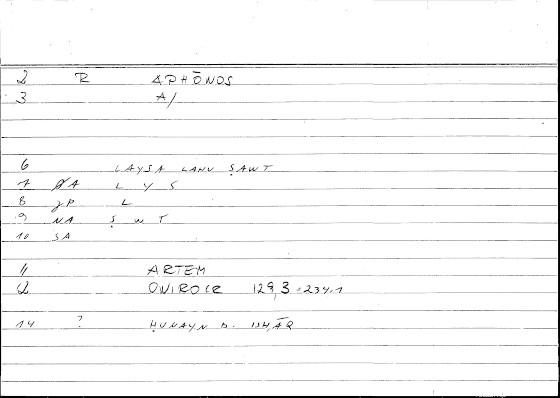 2 R APHŌNOS
3 A/
6 LAYSA LAHU ṢAWT
7 L Y S
8 JP L
9 NA Ṣ W T
10 SA
11 ARTEM
12 ONIROCR 129,3 = 234,1
14 ? ḤUNAYN B. ISḤĀQ